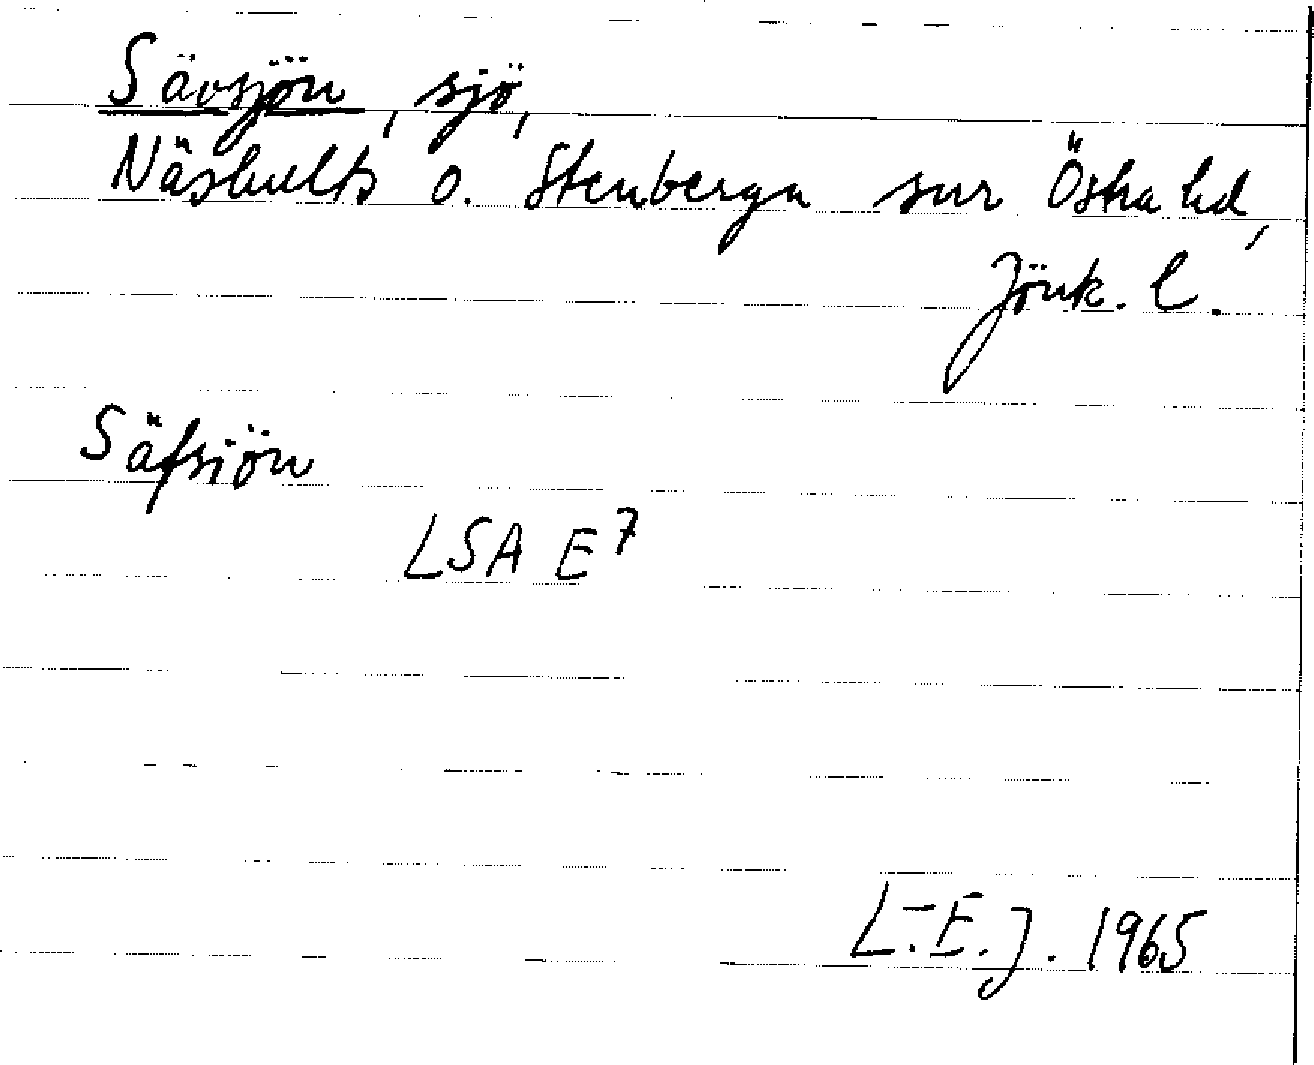 Sävsjön, sjö,
Näshults o. Stenberga snr Östra hd,
Jönk. l.
Säfsiön
LSA E7
L.-E. J. 1965